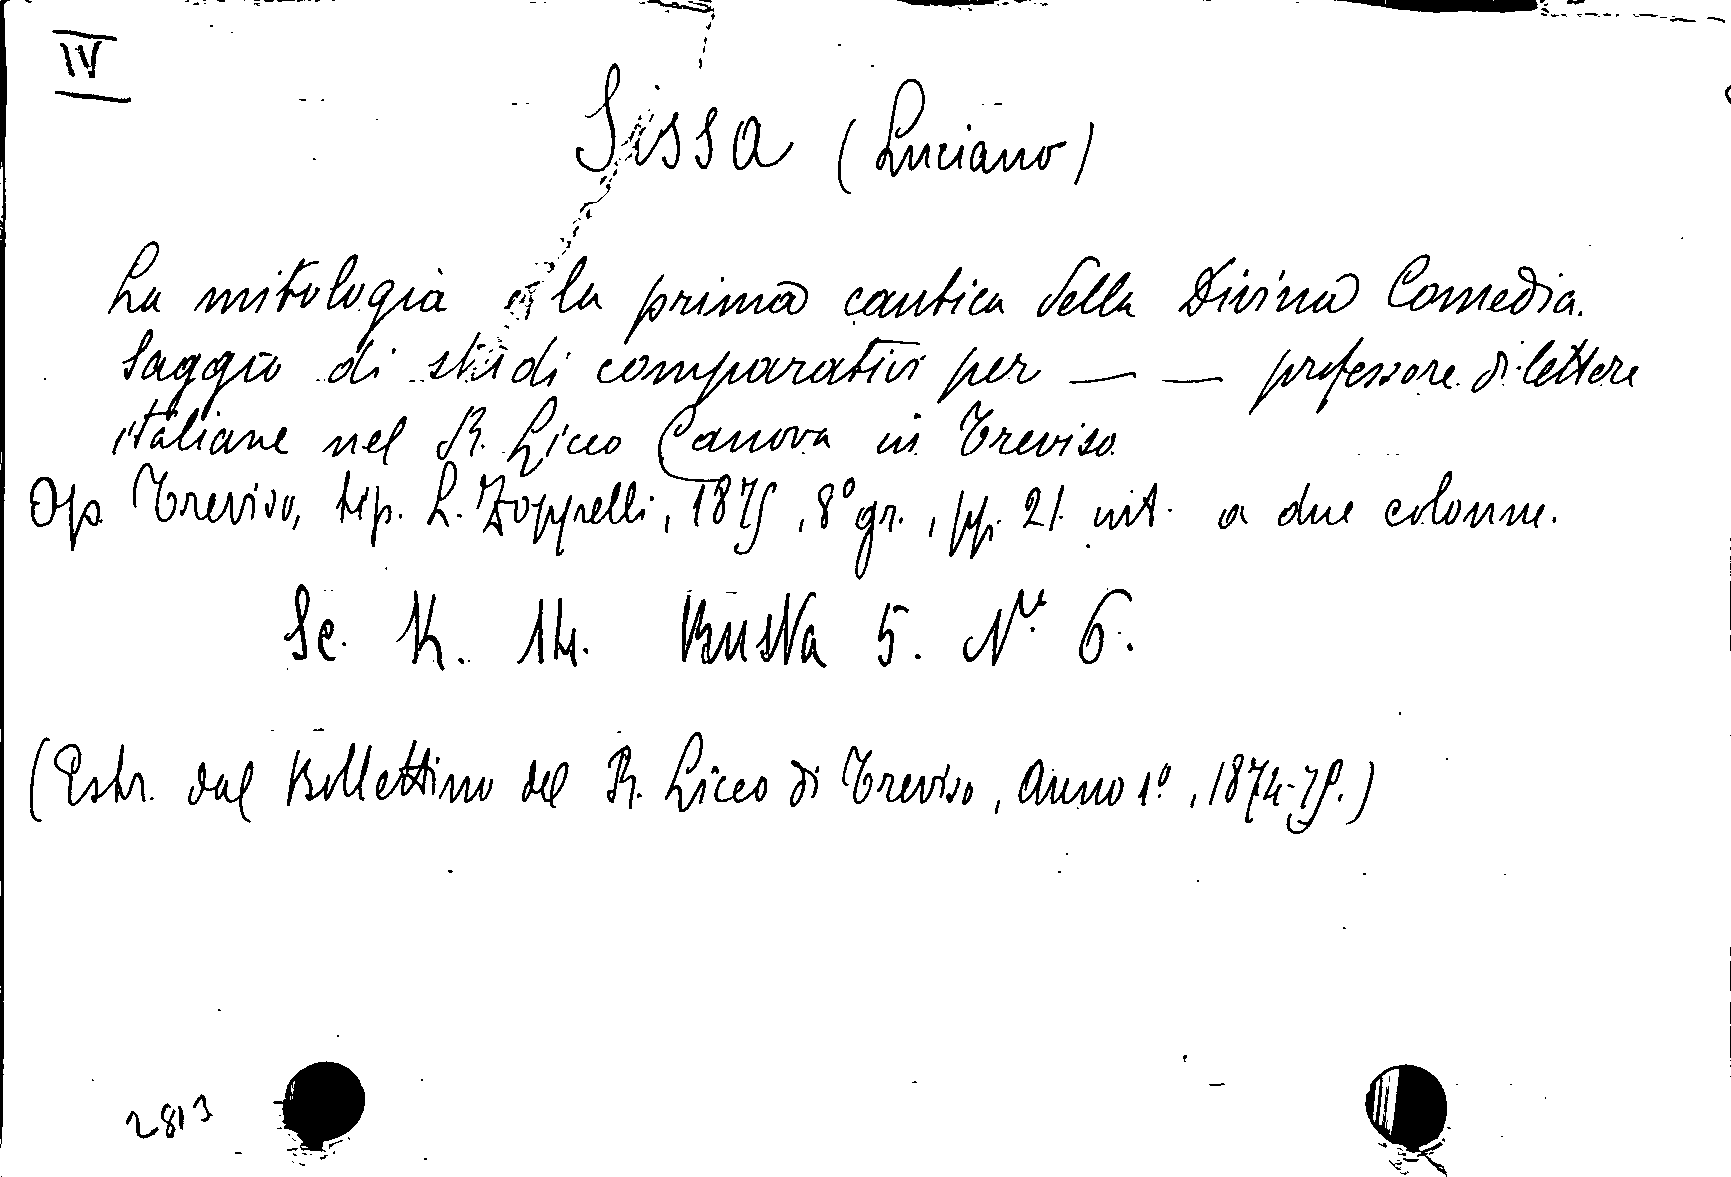 IV
Sissa (Luciano)
La mitologia e la prima cantica della Divina Comedia.
Saggio di studi comparativi per — — professore di lettere
italiane nel R. Liceo Canova in Treviso
Op. Treviso, tip. L. Zoppelli, 1875, 8° gr., pp. 21. int. a due colonne.
Sc. K. 14. Busta 5. N.° 6.
(Estr. dal Bollettino del R. Liceo di Treviso, Anno 1°, 1874-75.)
2813